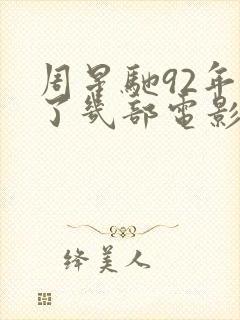 周星馳92年
了幾部電影
绛美人